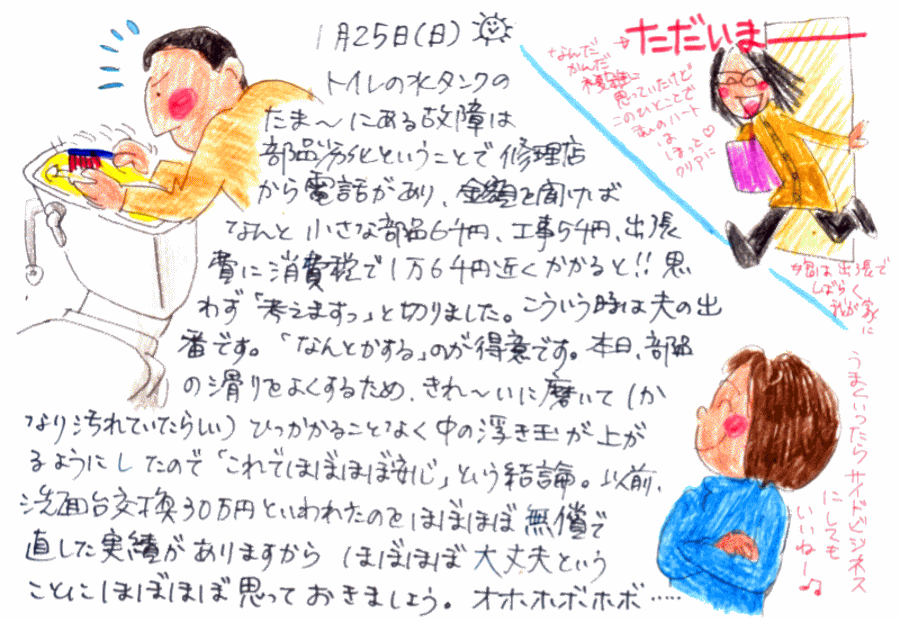 1月25日(日)
トイレの水タンクの
たま〜にある故障は
部品劣化ということで修理店
から電話があり、金額を聞けば
なんと小さな部品6千円、工事5千円、出張
費に消費税で1万6千円近くかかると!!思
わず「考えますっ」と切りました。こういう時は夫の出
番です。「なんとかする」のが得意です。本日、部品
の滑りをよくするため、きれ〜いに磨いて(か
なり汚れていたらしい)ひっかかることなく中の浮き玉が上が
るようにしたので「これでほぼほぼ安心」という結論。以前、
洗面台交換30万円といわれたのをほぼほぼ無償で
直した実績がありますから ほぼほぼ大丈夫という
ことにほぼほぼ思っておきましょう。オホホボホボ……
ただいまー
なんだ
かんだ
思っていたけど
このひとことで
ハート
は
しまっ♡
クリアに
は出張で
しばらく
我が家に
うまくいったらサイドビジネス
にしても
いいねー♫